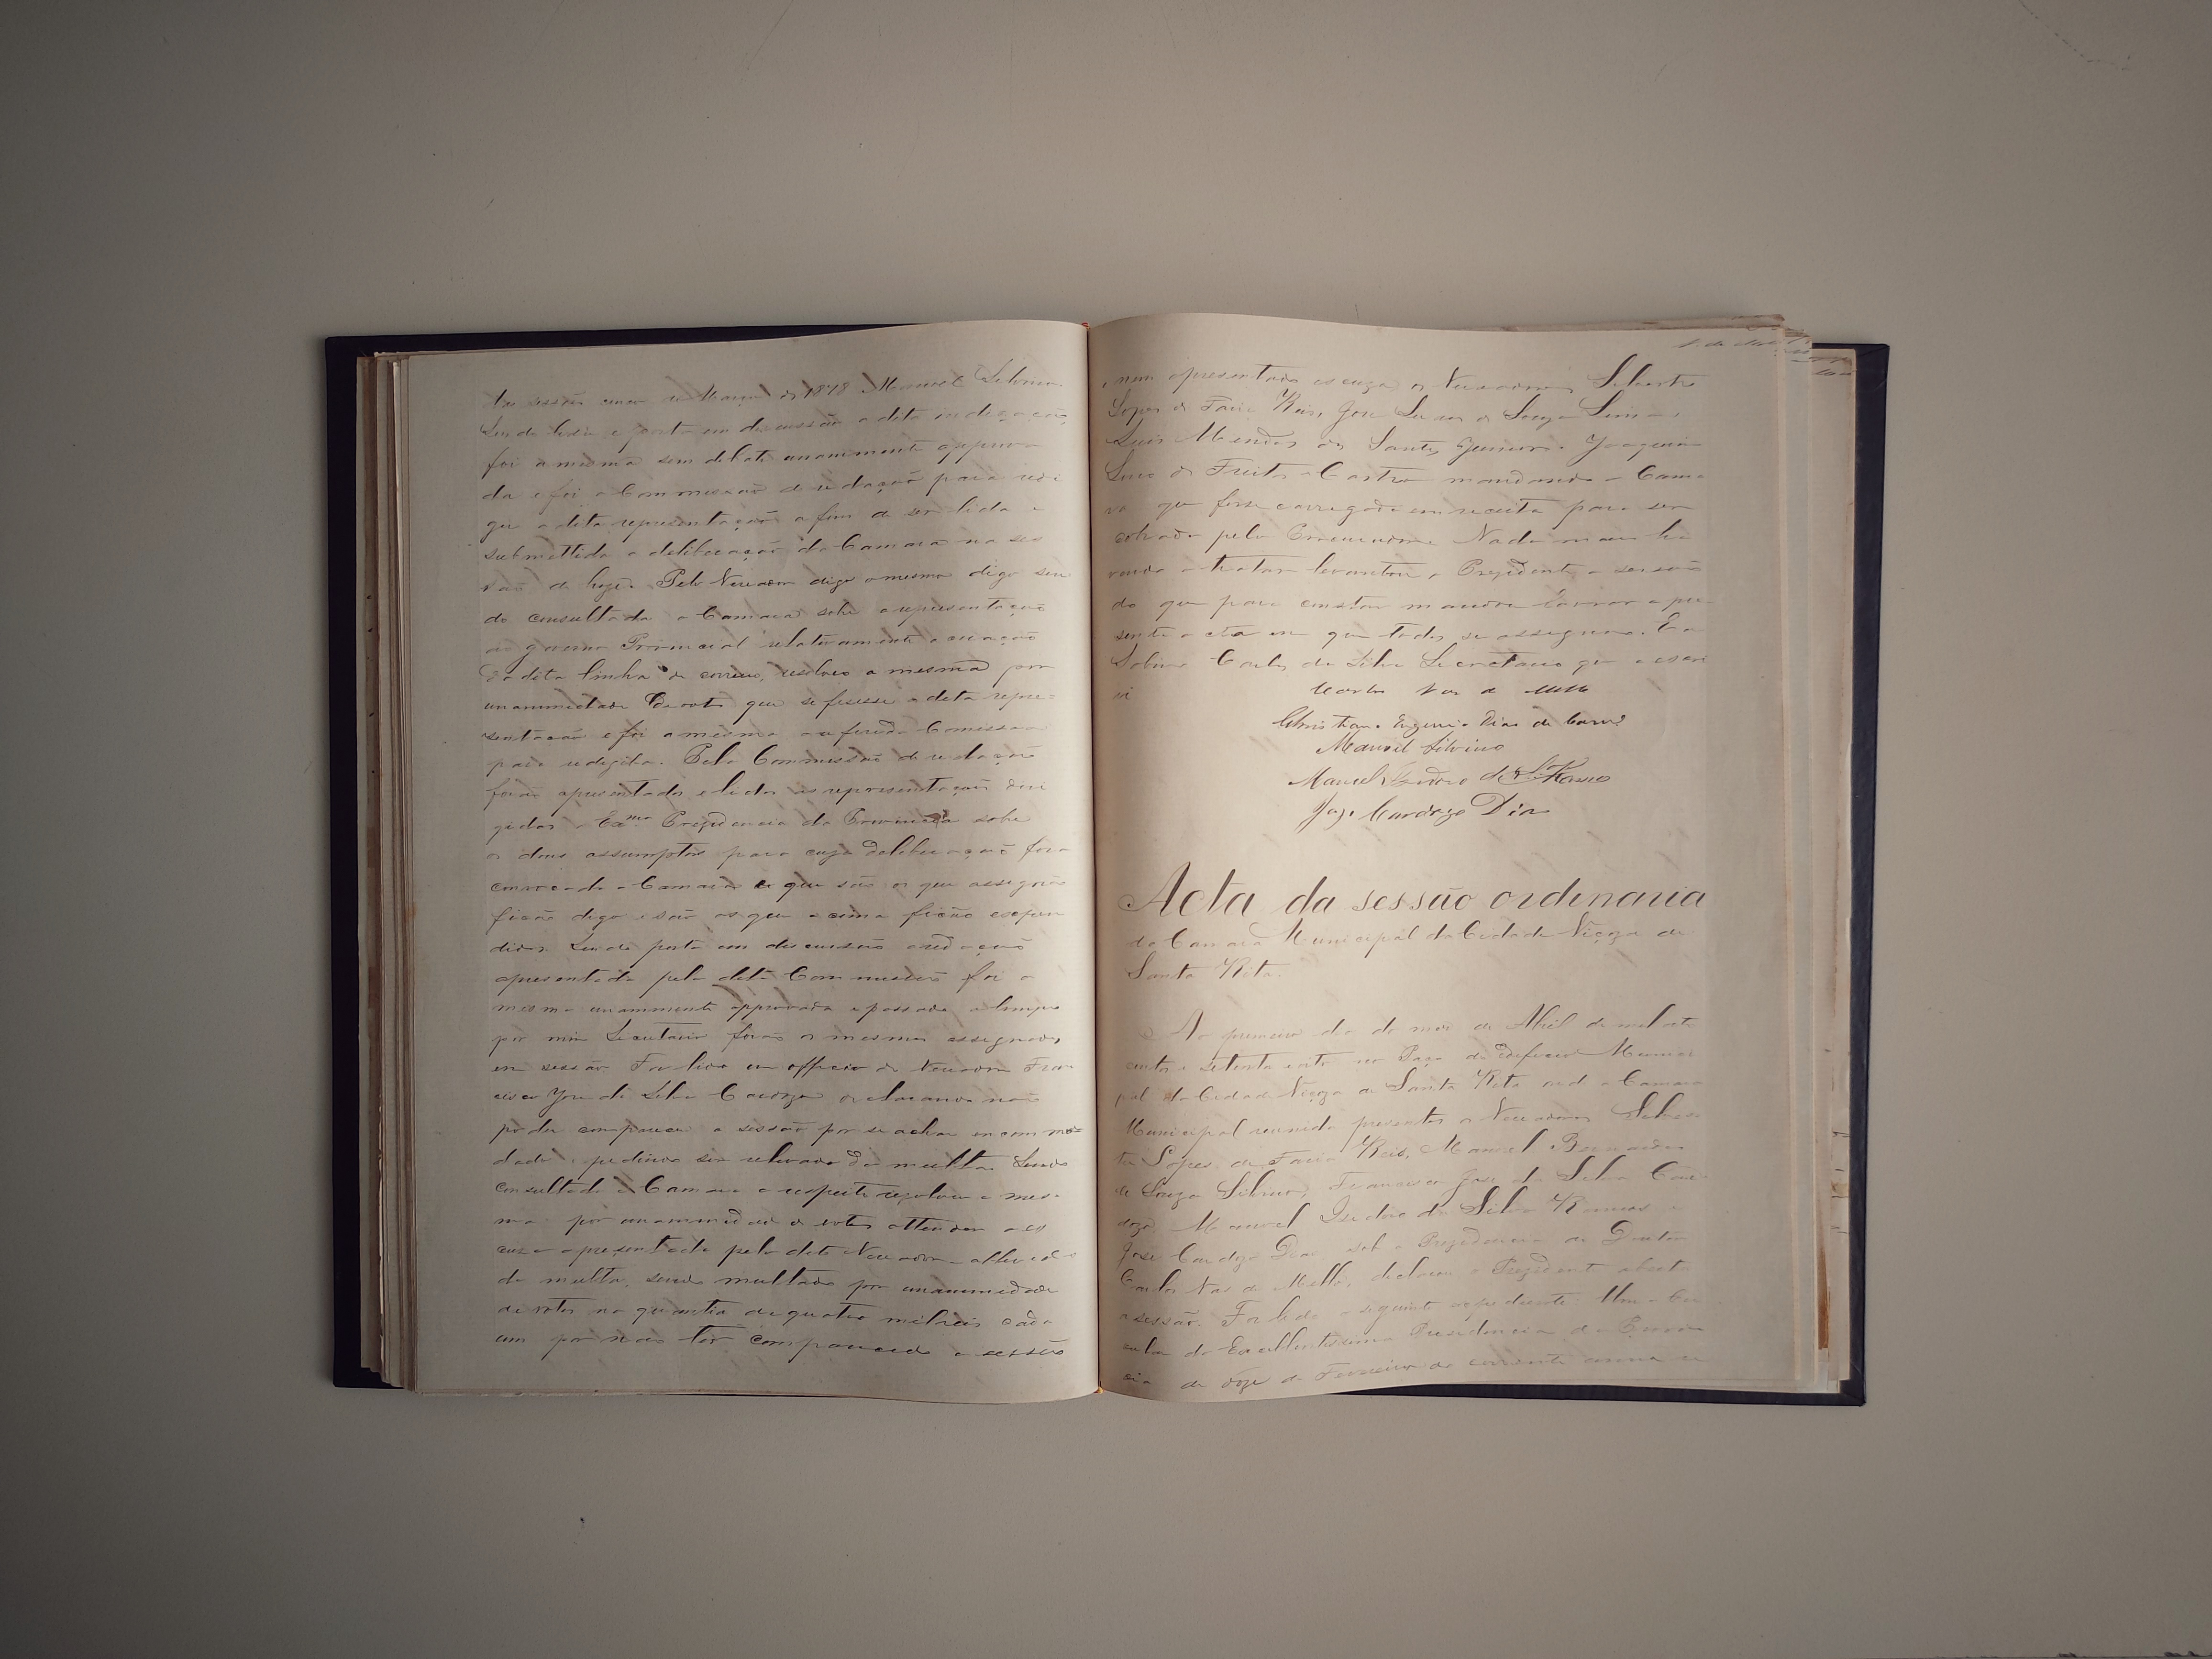 das sessões cinco de Março de 1878 Manoel Silvino.
Sendo lida e posta em discussão a dita indicação
foi a mesma sem debate unanimemente approva
da e foi a Commissão de redação para redi
gir a dita representação a fim de ser lida e
submettida a deliberação da Camara na ses
são de hoje. Pelo Vereador digo o mesmo digo sen
do consultada a Camara sobre a representação
ao governo Provincial relativamente a creação
da dita linha de correio, resolveo a mesma por
unanimidade de votos que se fisesse a dita repre=
sentação e foi a mesma a referida Comissão
para redigila. Pela Commissão de redação
forão apresentadas e lidas as representações diri
gidas a Exma Presidencia da Provincia sobre
os dous assumptos para cuja deliberação fora
convocada a Camara e que são os que assignão
ficão digo e são os que acima ficão expen
didos. Sendo posta em discussão a redação
apresentada pela dita Commissão foi a
mesma unanimemente approvada e passada a limpo
por mim Secretario forão os mesmos assignados
em sessão. Foi lido um officio do Vereador Fran
cisco Jose da Silva Cardozo declarando não
poder comparecer a sessão por se achar encommo=
dado, pedindo ser relevado da multa. Sendo
consultada a Camara a respeito resolveu a mes-
ma por unanimidade de votos attender a es
cuza apresentada pelo dito Vereador alliviado
da multa, sendo multado por unanimidade
de votos na quantia de quatro milreis cada
um por não ter comparecido a sessão
e nem apresentado escuza os Vereadores Sebastião
Lopes de Faria Reis, Jose Lucas de Souza Lima,
Luis Mendes dos Santos Junior. Joaquim
Lino de Freitas e Castro mandando a Cama
ra que fosse carregado em receita para ser
cobrada pelo Procurador. Nada mais ha
vendo a tratar levantou o Prezidente a sessão
do que para constar mandou lavrar a pre
sente acta em que todos se assignão. Eu
Sabino Carlos da Silva Secretario que a escre
vi
Carlos Vaz de Mello
Christiano Eugenio Dias de Carvº
Manoel Silvino
Manoel Izidoro da Sª Ramos
Joze Cardozo Dias
Acta da sessão ordinaria
da Camara Municipal da Cidade Viçoza de
Santa Rita.
Ao primeiro dia do mez de Abril de mil oito
centos e setenta e oito no Paço do edificio Munici
pal da Cidade Viçoza de Santa Rita onde a Camara
Municipal reunida presentes os Vereadores Sebas
tião Lopes de Faria Reis, Manoel Bernardes
de Souza Silvino, Francisco Jose da Silva Car
dozo, Manoel Izidoro da Silva Ramos e
Jose Cardozo Dias sob a Prezidencia do Doutor
Carlos Vaz de Mello, declarou o Prezidente aberta
a sessão. Foi lido o seguinte expediente. Uma Cir
cular da Excellentissima Presidencia da Provin
cia de doze de Fevereiro do corrente anno